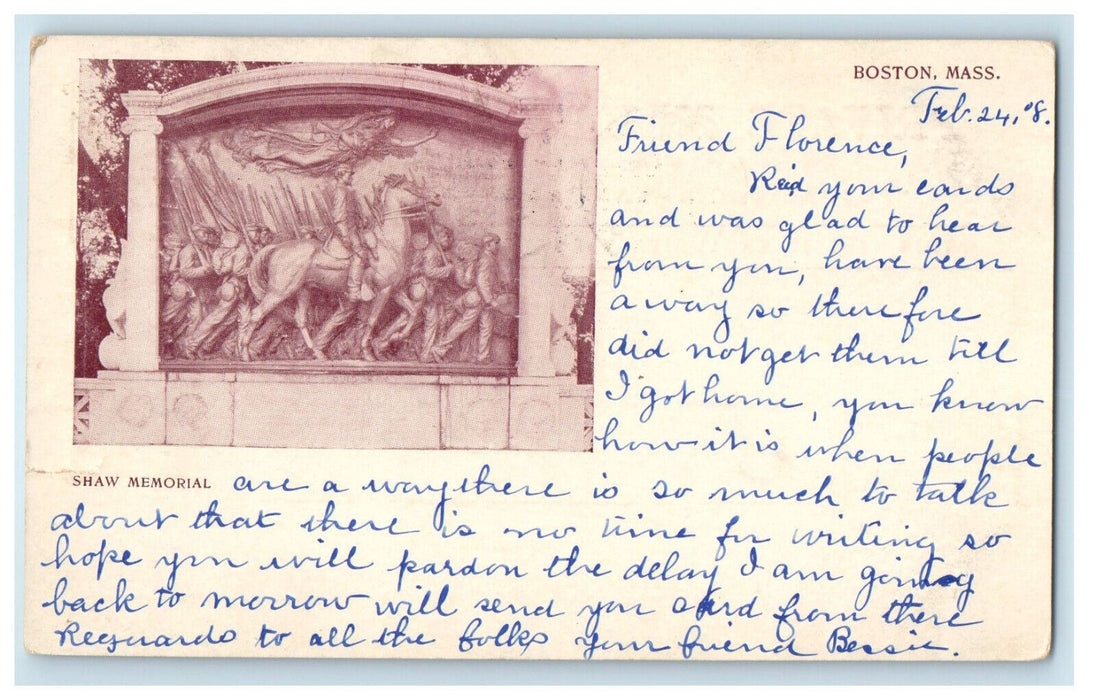 BOSTON, MASS.
Feb. 24, '08.
Friend Florence,
Rec'd your cards
and was glad to hear
from you, have been
away so therefore
did not get them till
I got home, you know
how it is when people
SHAW MEMORIAL are away there is so much to talk
about that there is no time for writing so
hope you will pardon the delay I am going
back to morrow will send you card from there
Reguards to all the folks your friend Bessie.